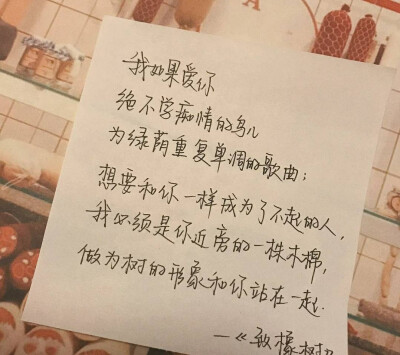 我如果爱你
绝不学痴情的鸟儿
为绿荫重复单调的歌曲；
想要和你一样成为了不起的人，
我必须是你近旁的一株木棉，
做为树的形象和你站在一起.
—《致橡树》